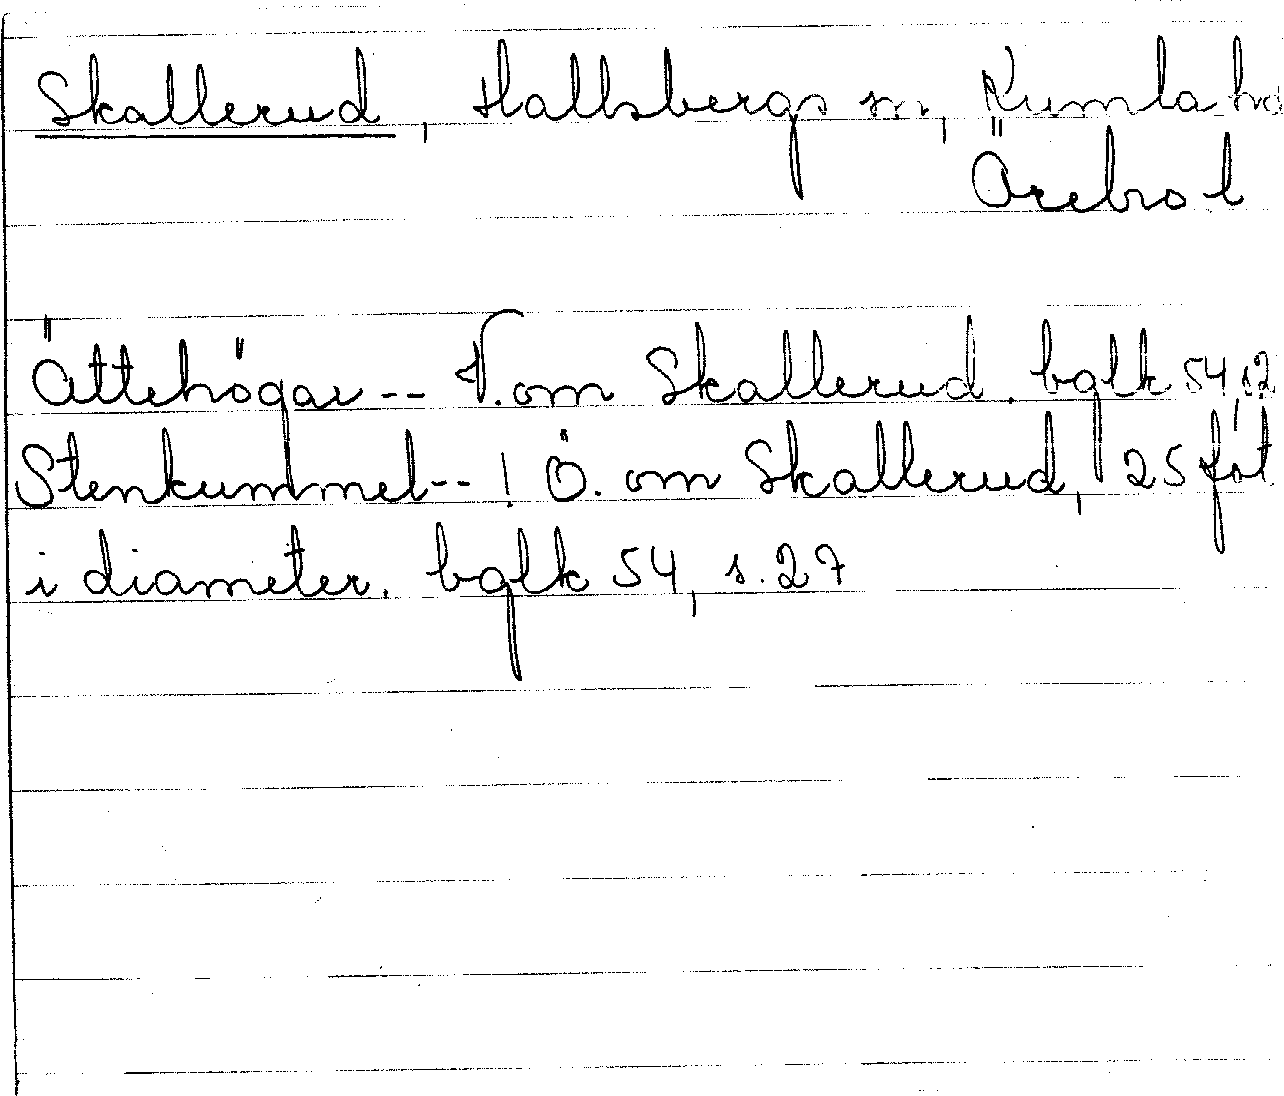 Skallerud, Hallsbergs sn, Kumla hd
Örebro l
Ättehögar -- V. om Skallerud. bglk 54, s. 2
Stenkummel -- ! Ö. om Skallerud, 25 fot
i diameter. bglk 54, s. 27